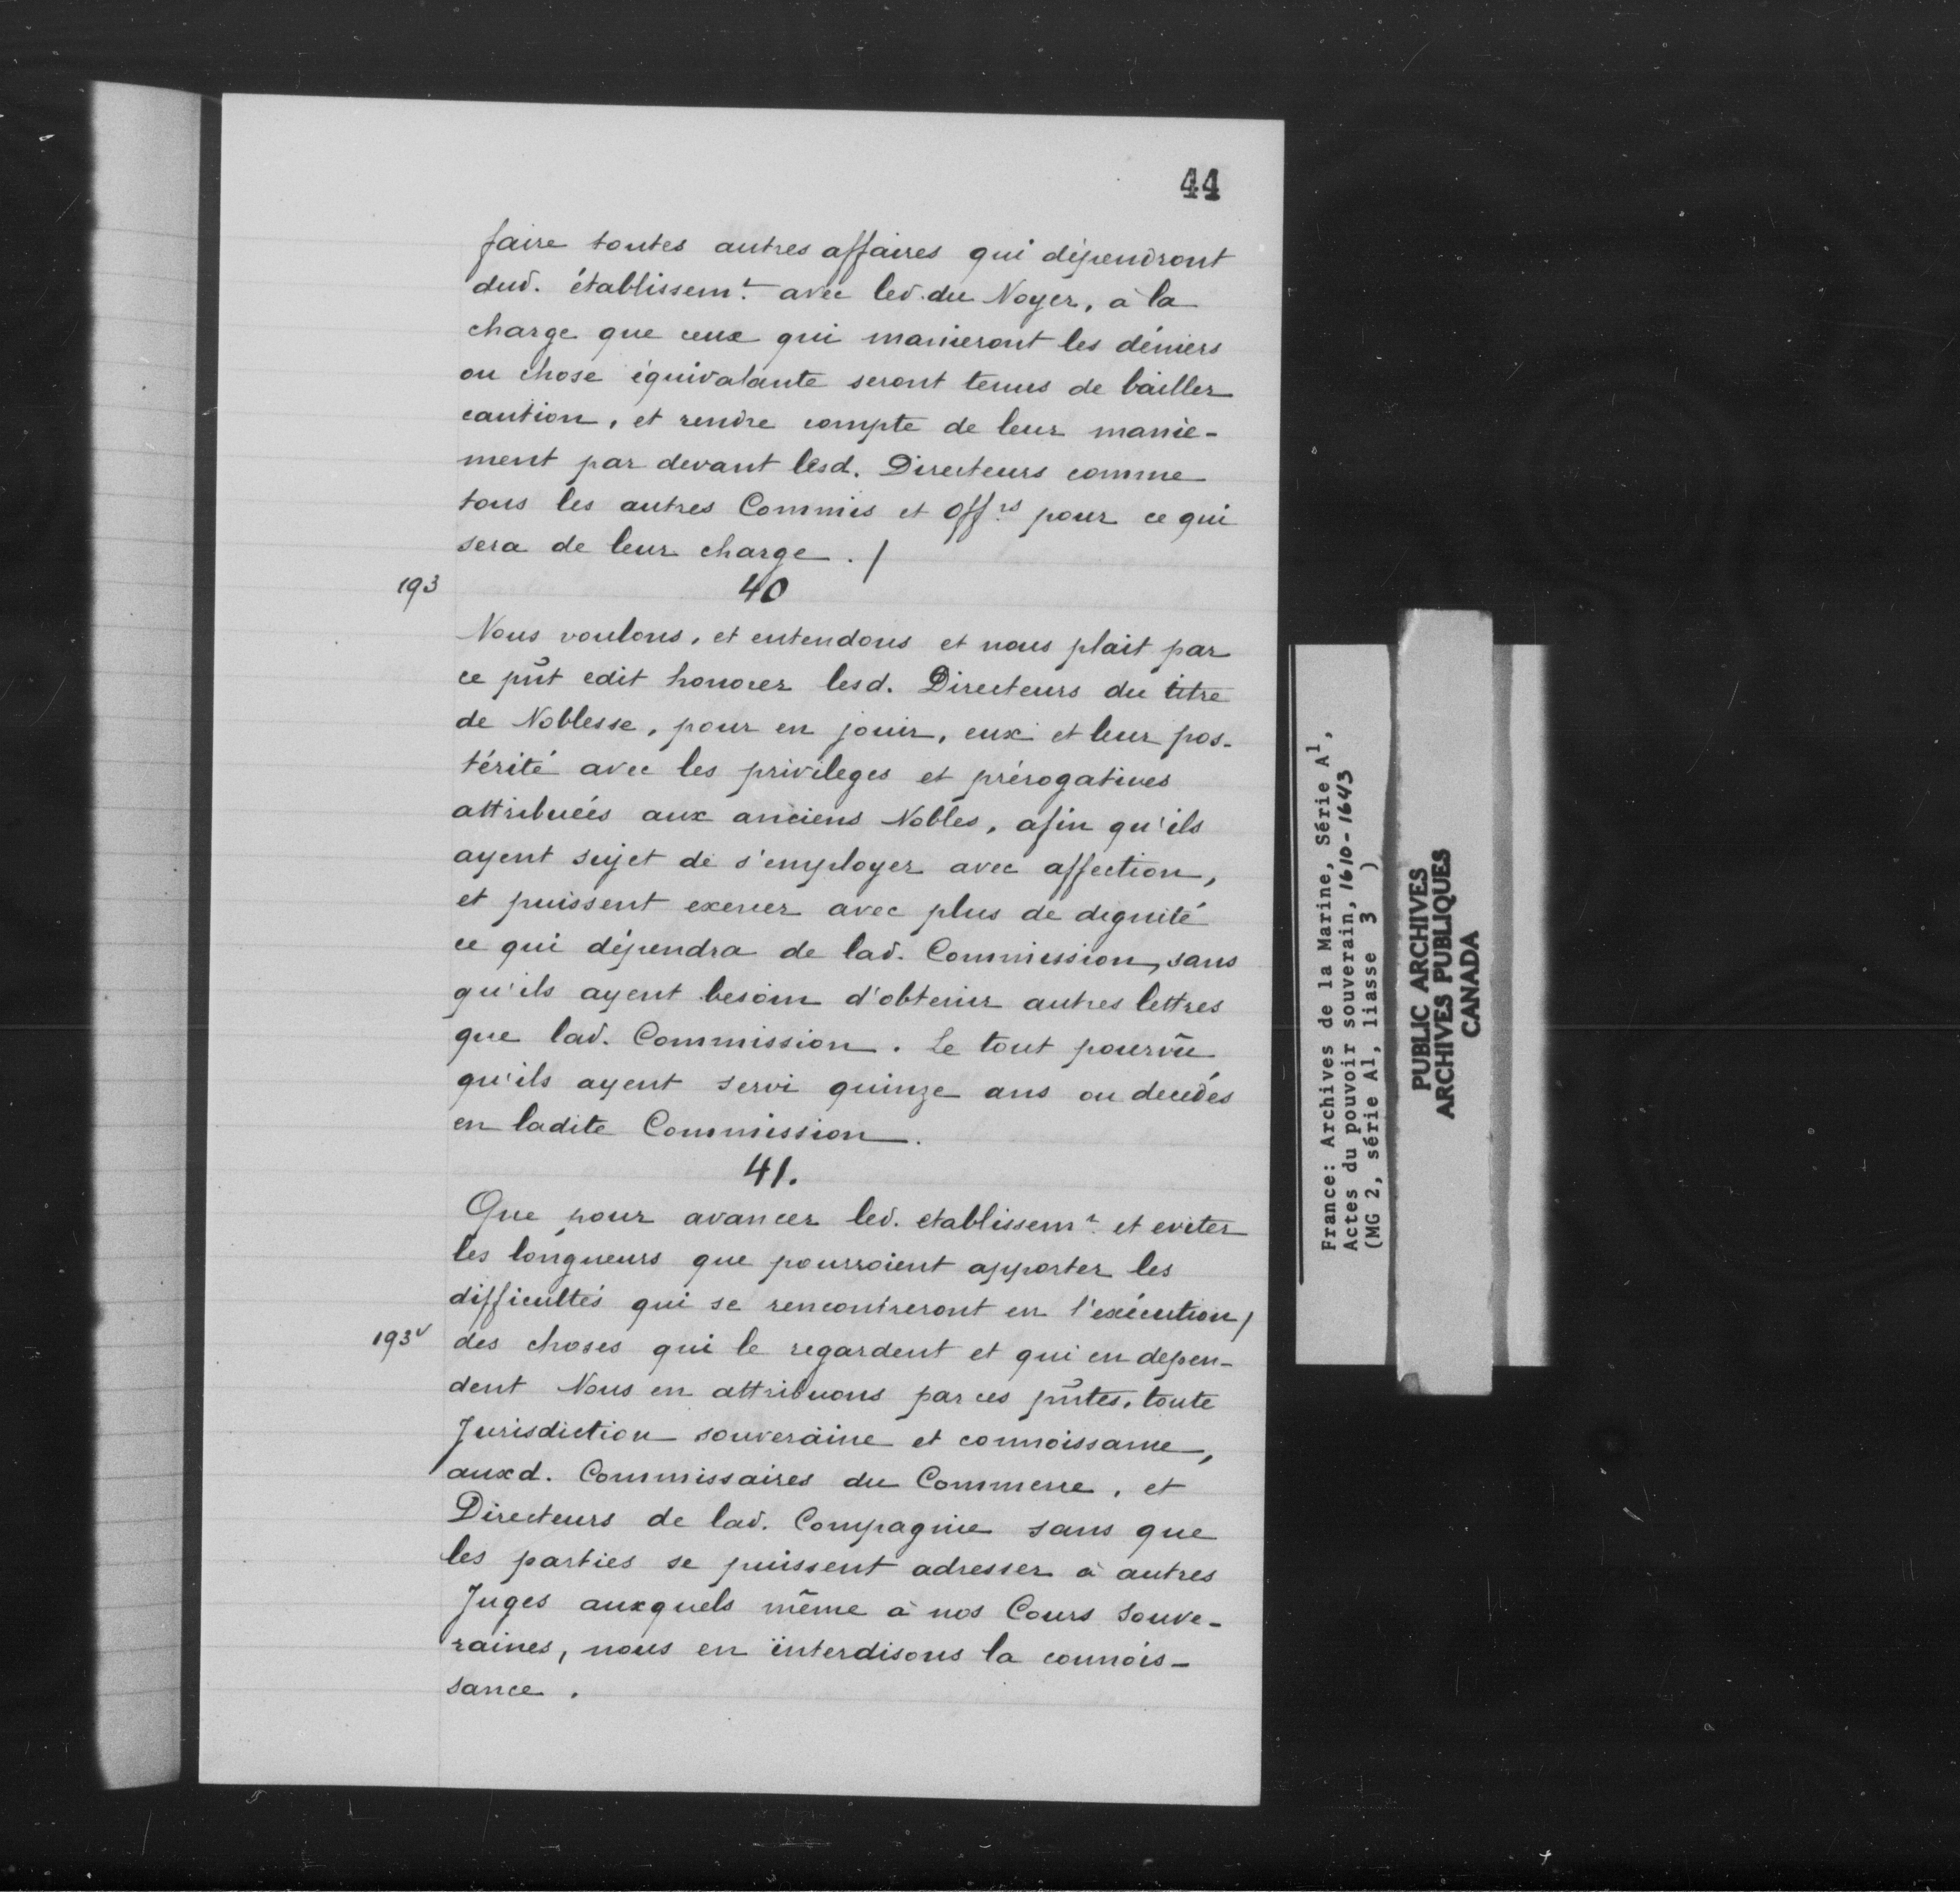 44
faire toutes autres affaires qui dépendront
dud. établissemt. avec led. du Noyer, à la
charge que ceux qui manieront les déniers
ou chose équivalante seront tenus de bailler
caution, et rendre compte de leur manie-
ment par devant lesd. Directeurs comme
tous les autres Commis et Offrs. pour ce qui
sera de leur charge. /
193
40
Nous voulons, et entendons et nous plait par
ce pñt edit honorer lesd. Directeurs du titre
de Noblesse, pour en jouir, eux et leur pos-
térité avec les privileges et prérogatives
attribuées aux anciens Nobles, afin qu'ils
ayent sujet de s'employer avec affection,
et puissent exercer avec plus de dignité
ce qui dépendra de lad. Commission, sans
qu'ils ayent besoin d'obtenir autres lettres
que lad. Commission. Le tout pourvû
qu'ils ayent servi quinze ans ou decédés
en ladite Commission.
41.
Que pour avancer led. etablissemt. et eviter
les longueurs que pourroient apporter les
difficultés qui se rencontreront en l'exécution /
193v
des choses qui le regardent et qui en depen-
dent Nous en attribuons par ces pñtes, toute
Jurisdiction souveraine et connoissance,
auxd. Commissaires du Commerce, et
Directeurs de lad. Compagnie sans que
les parties se puissent adresser à autres
Juges auxquels même à nos Cours souve-
raines, nous en interdisons la connois-
sance.
France: Archives de la Marine, Série A1,
Actes du pouvoir souverain, 1610-1643
(MG 2, série A1, liasse 3 )
PUBLIC ARCHIVES
ARCHIVES PUBLIQUES
CANADA